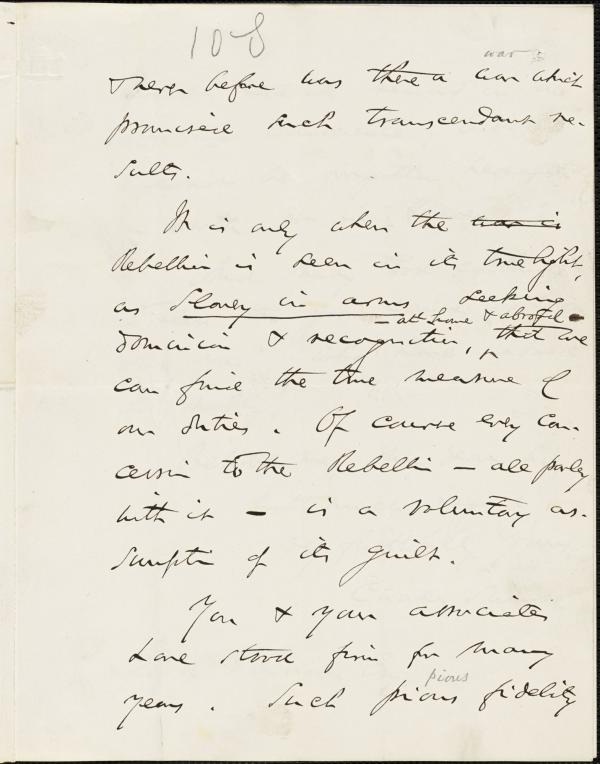 108
war
& never before was there a war which
promised such transcendant re-
sults.
It is only when the war is
Rebellion is seen in its true light,
as Slavery in arms seeking
- at home & abroad -
dominion & recognition, that we
can find the true measure of
our duties. Of course every con-
cession to the Rebellion — all parley
with it — is a voluntary as-
sumption of its guilt.
You & your associates
have stood firm for many
pious
years. Such pious fidelity